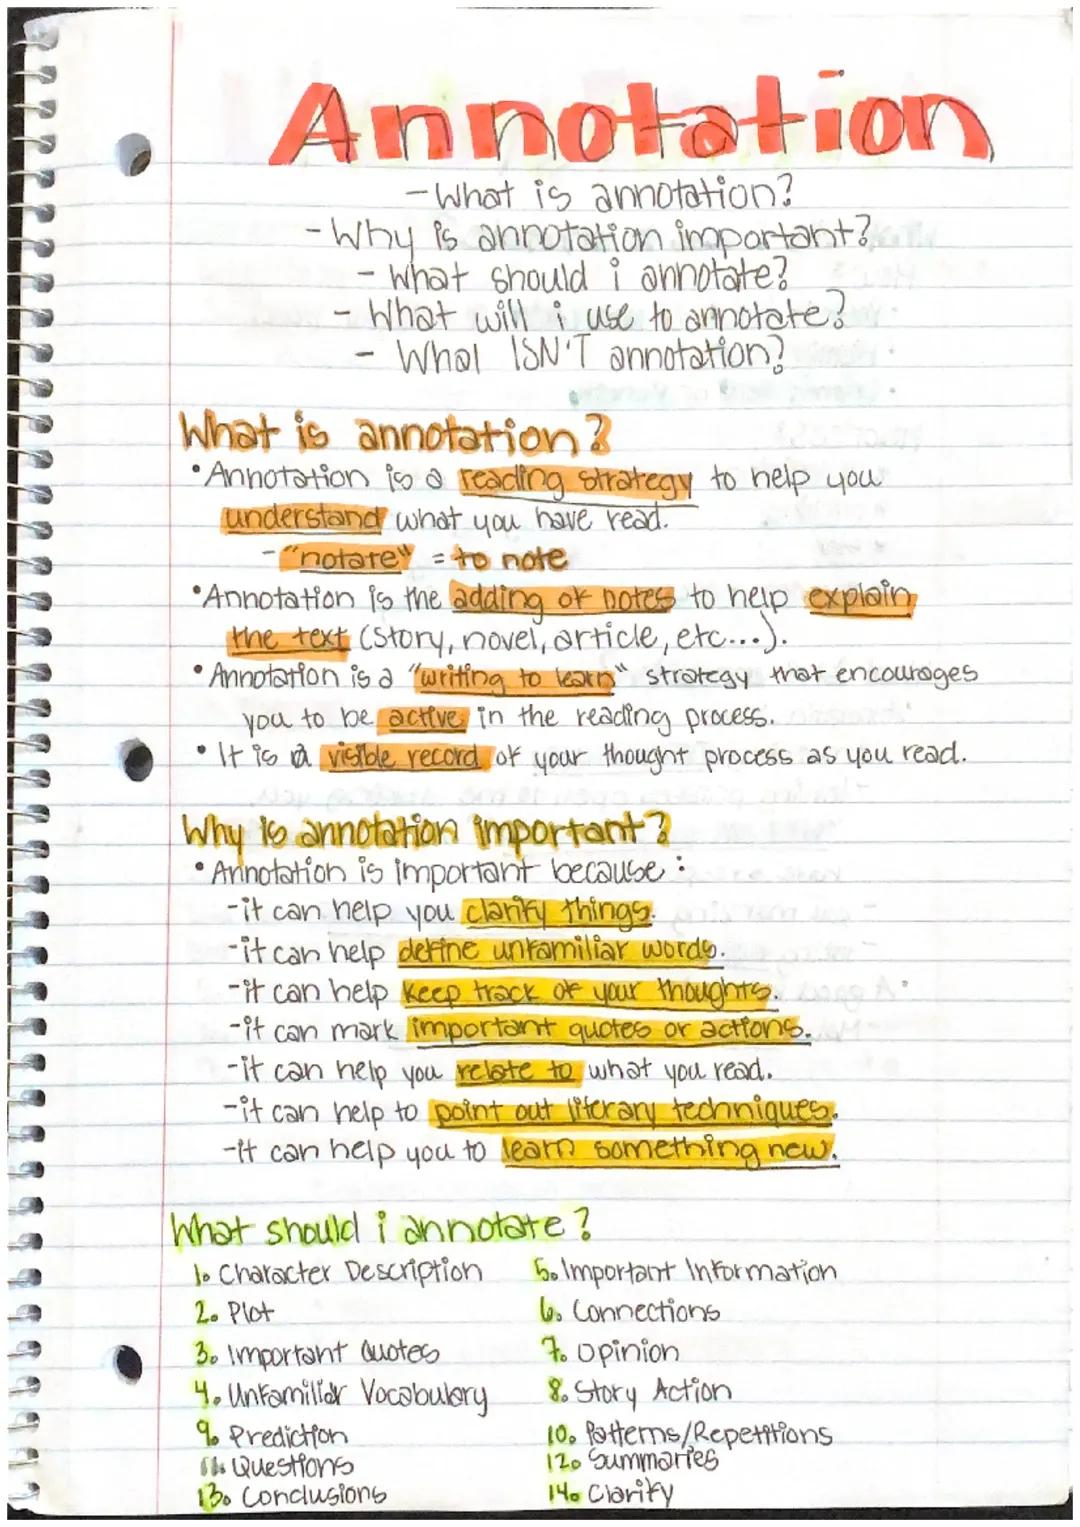 Annotation
- What is annotation?
- Why is annotation important?
- What should i annotate?
- What will i use to annotate?
- What ISN'T annotation?
What is annotation?
• Annotation is a reading strategy to help you
understand what you have read.
- "notare" = to note
• Annotation is the adding of notes to help explain
the text (story, novel, article, etc...).
• Annotation is a "writing to learn" strategy that encourages
you to be active in the reading process.
• It is a visible record of your thought process as you read.
Why is annotation important?
• Annotation is important because:
- it can help you clarify things.
- it can help define unfamiliar words.
- it can help keep track of your thoughts.
- it can mark important quotes or actions.
- it can help you relate to what you read.
- it can help to point out literary techniques.
- it can help you to learn something new.
What should i annotate?
1. Character Description 5. Important Information
2. Plot 6. Connections
3. Important Quotes 7. Opinion
4. Unfamiliar Vocabulary 8. Story Action
9. Prediction 10. Patterns/Repetitions
11. Questions 12. Summaries
13. Conclusions 14. Clarify